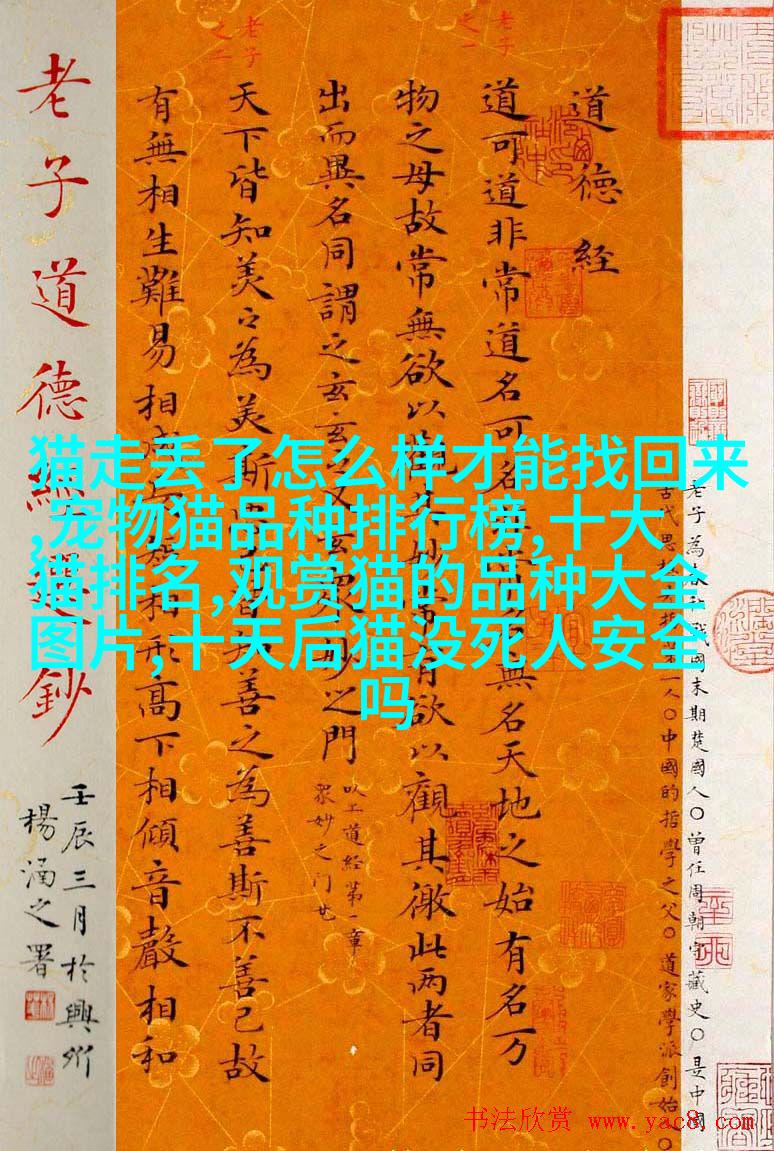 猫走丢了怎么样才能找回来
,宠物猫品种排行榜,十大
猫排名,观赏猫的品种大全
图片,十天后猫没死人安全
吗
道德經
老子之一
道可道非常道名可名非常名無名天地之始有名万
物之母故常無欲以觀其妙常有欲以觀其徼此两者同
出而異名同謂之玄玄之又玄眾妙之門
以上道經第一章
眾妙之门
老子之二
天下皆知美之為美斯皆知善之為善斯不善已故
有無相生難易相成相形高下相傾音聲相和
老子道德經選鈔
壬辰三月於興
楊涵之署
老子為春戰國末期楚國人〇曾任周朝守藏史〇是中國
古代思一人〇中國的哲學之父〇道家學派創始〇
书法欣赏 www.yac8.com